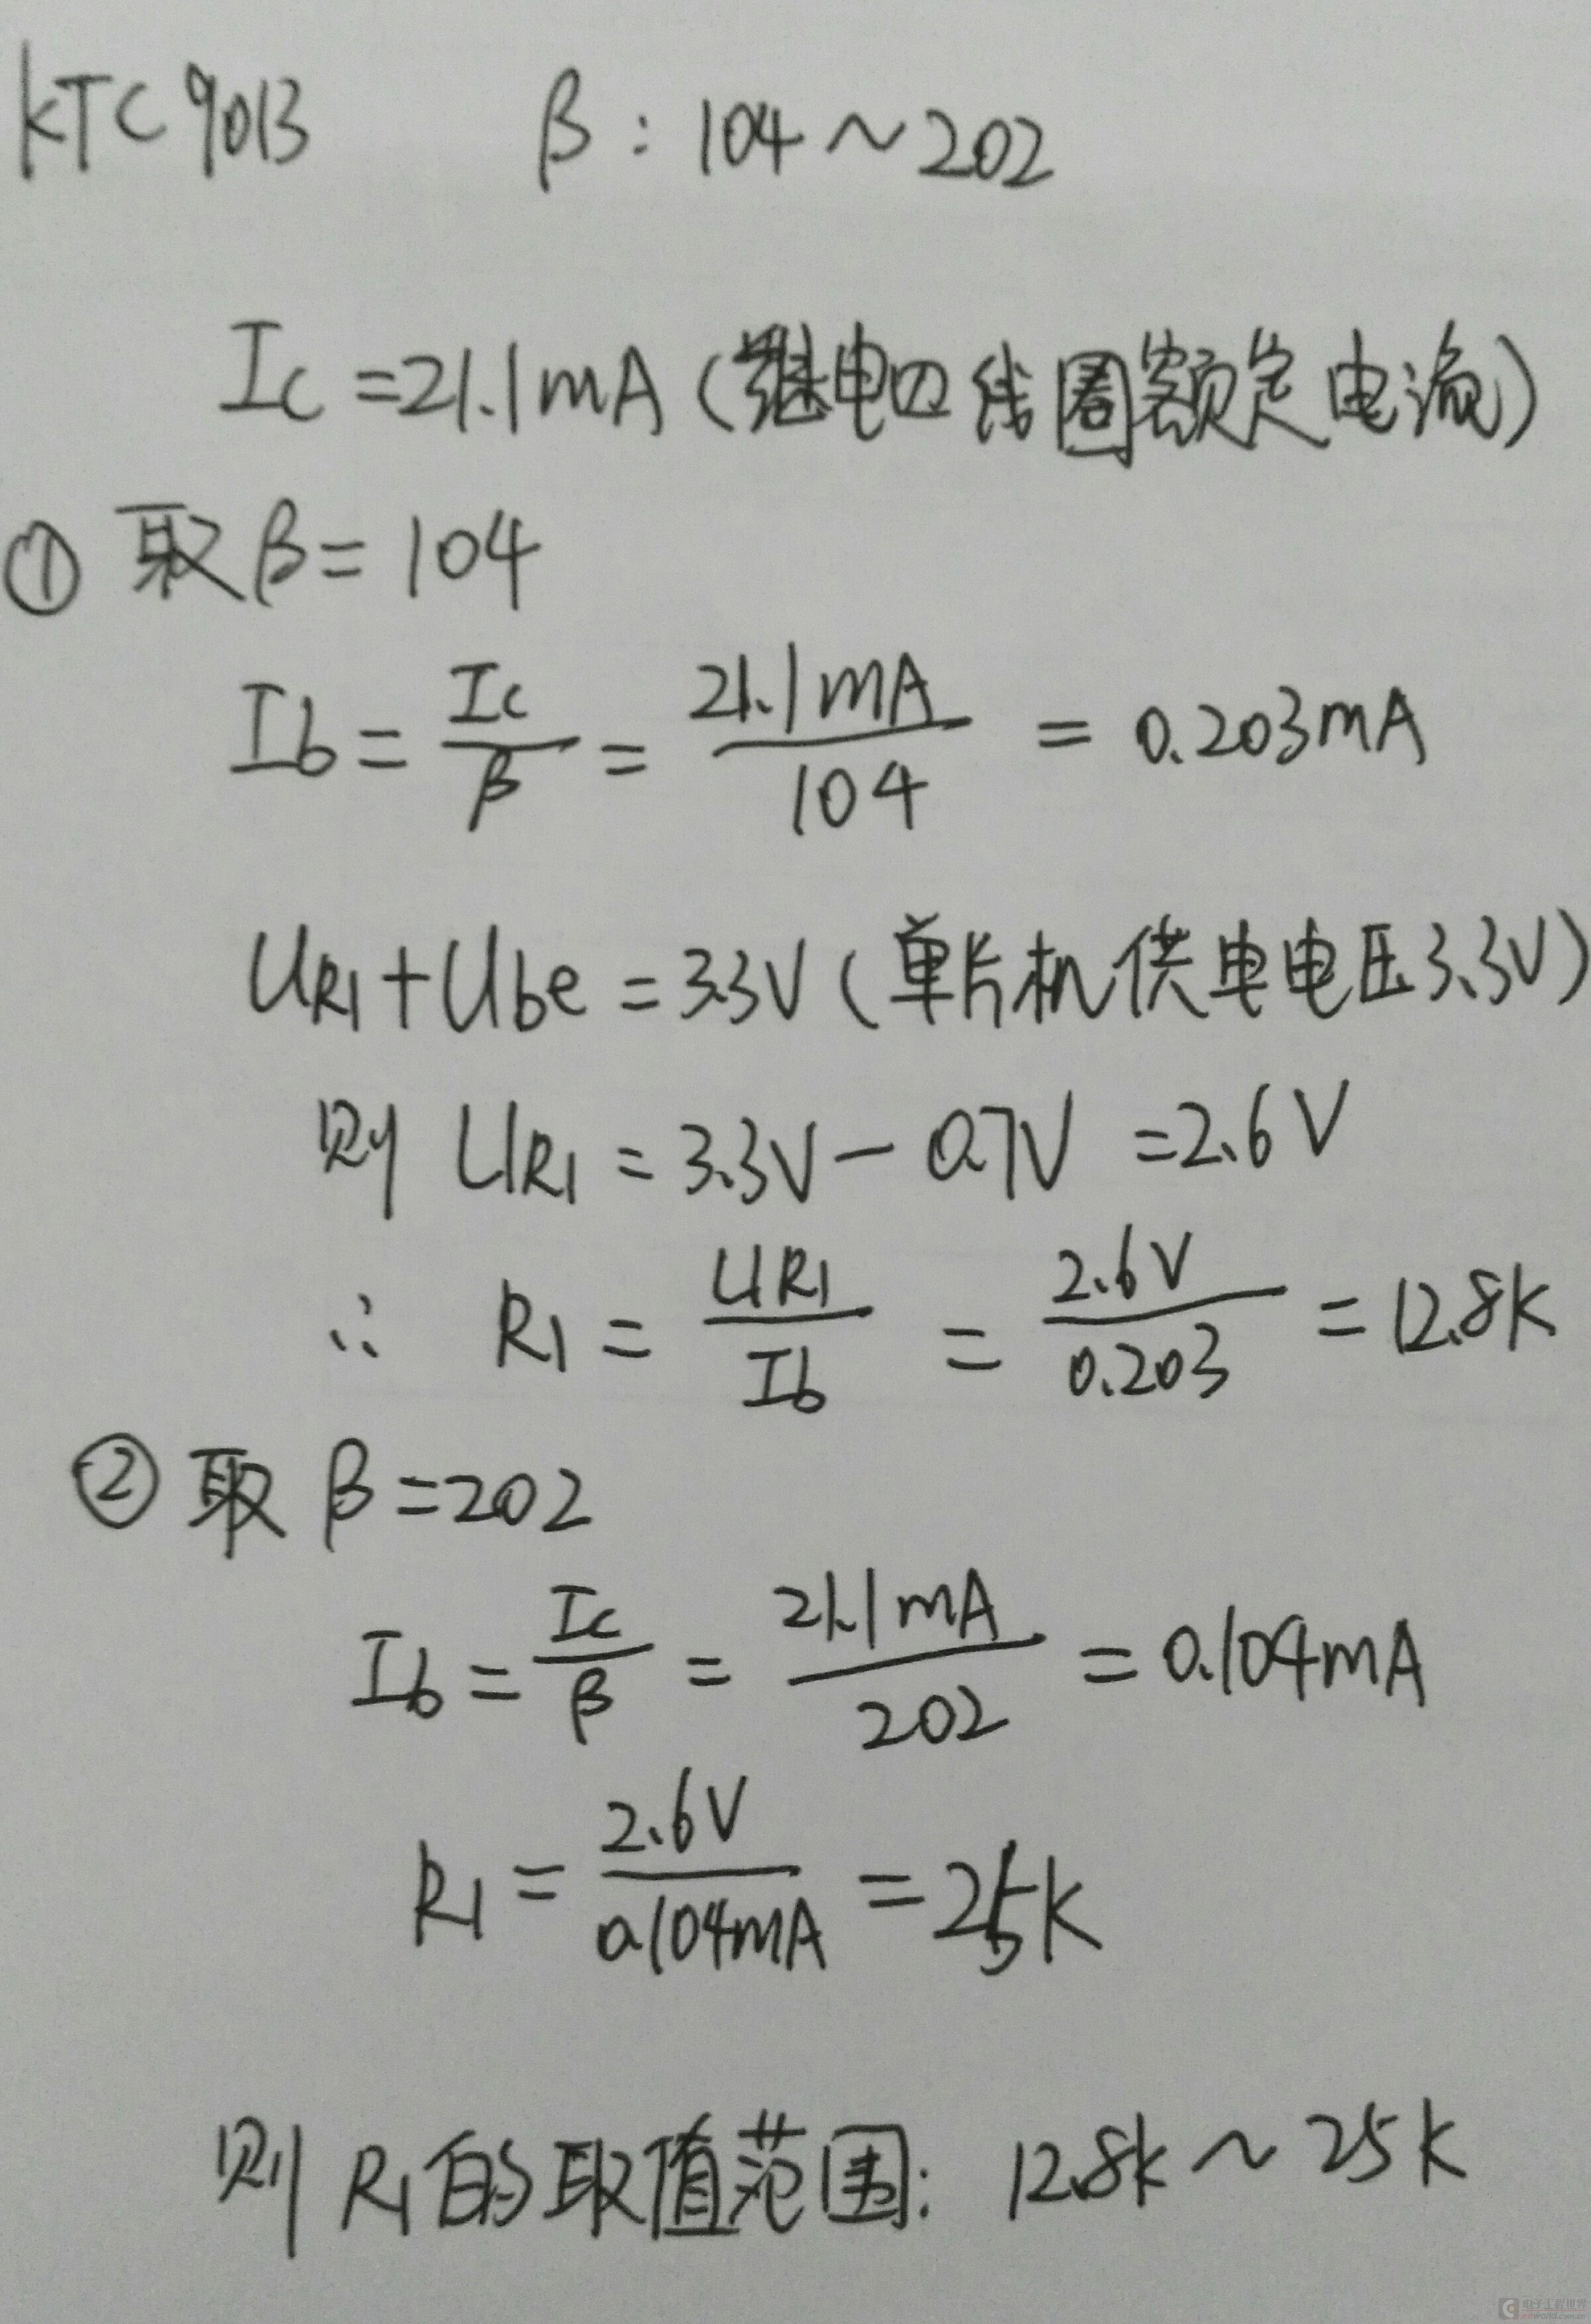 KTC9013 β: 104~202
Ic=21.1mA(继电四线圈额定电流)
① 取β=104
Ib=Ic/β=21.1mA/104=0.203mA
UR1+Ube=3.3V(单片机供电电压3.3V)
则 UR1=3.3V-0.7V=2.6V
∴ R1=UR1/Ib=2.6V/0.203=12.8K
② 取 β=202
Ib=Ic/β=21.1mA/202=0.104mA
R1=2.6V/0.104mA=25K
则R1的取值范围: 12.8k~25K
电子工程世界
eeworld.com.cn